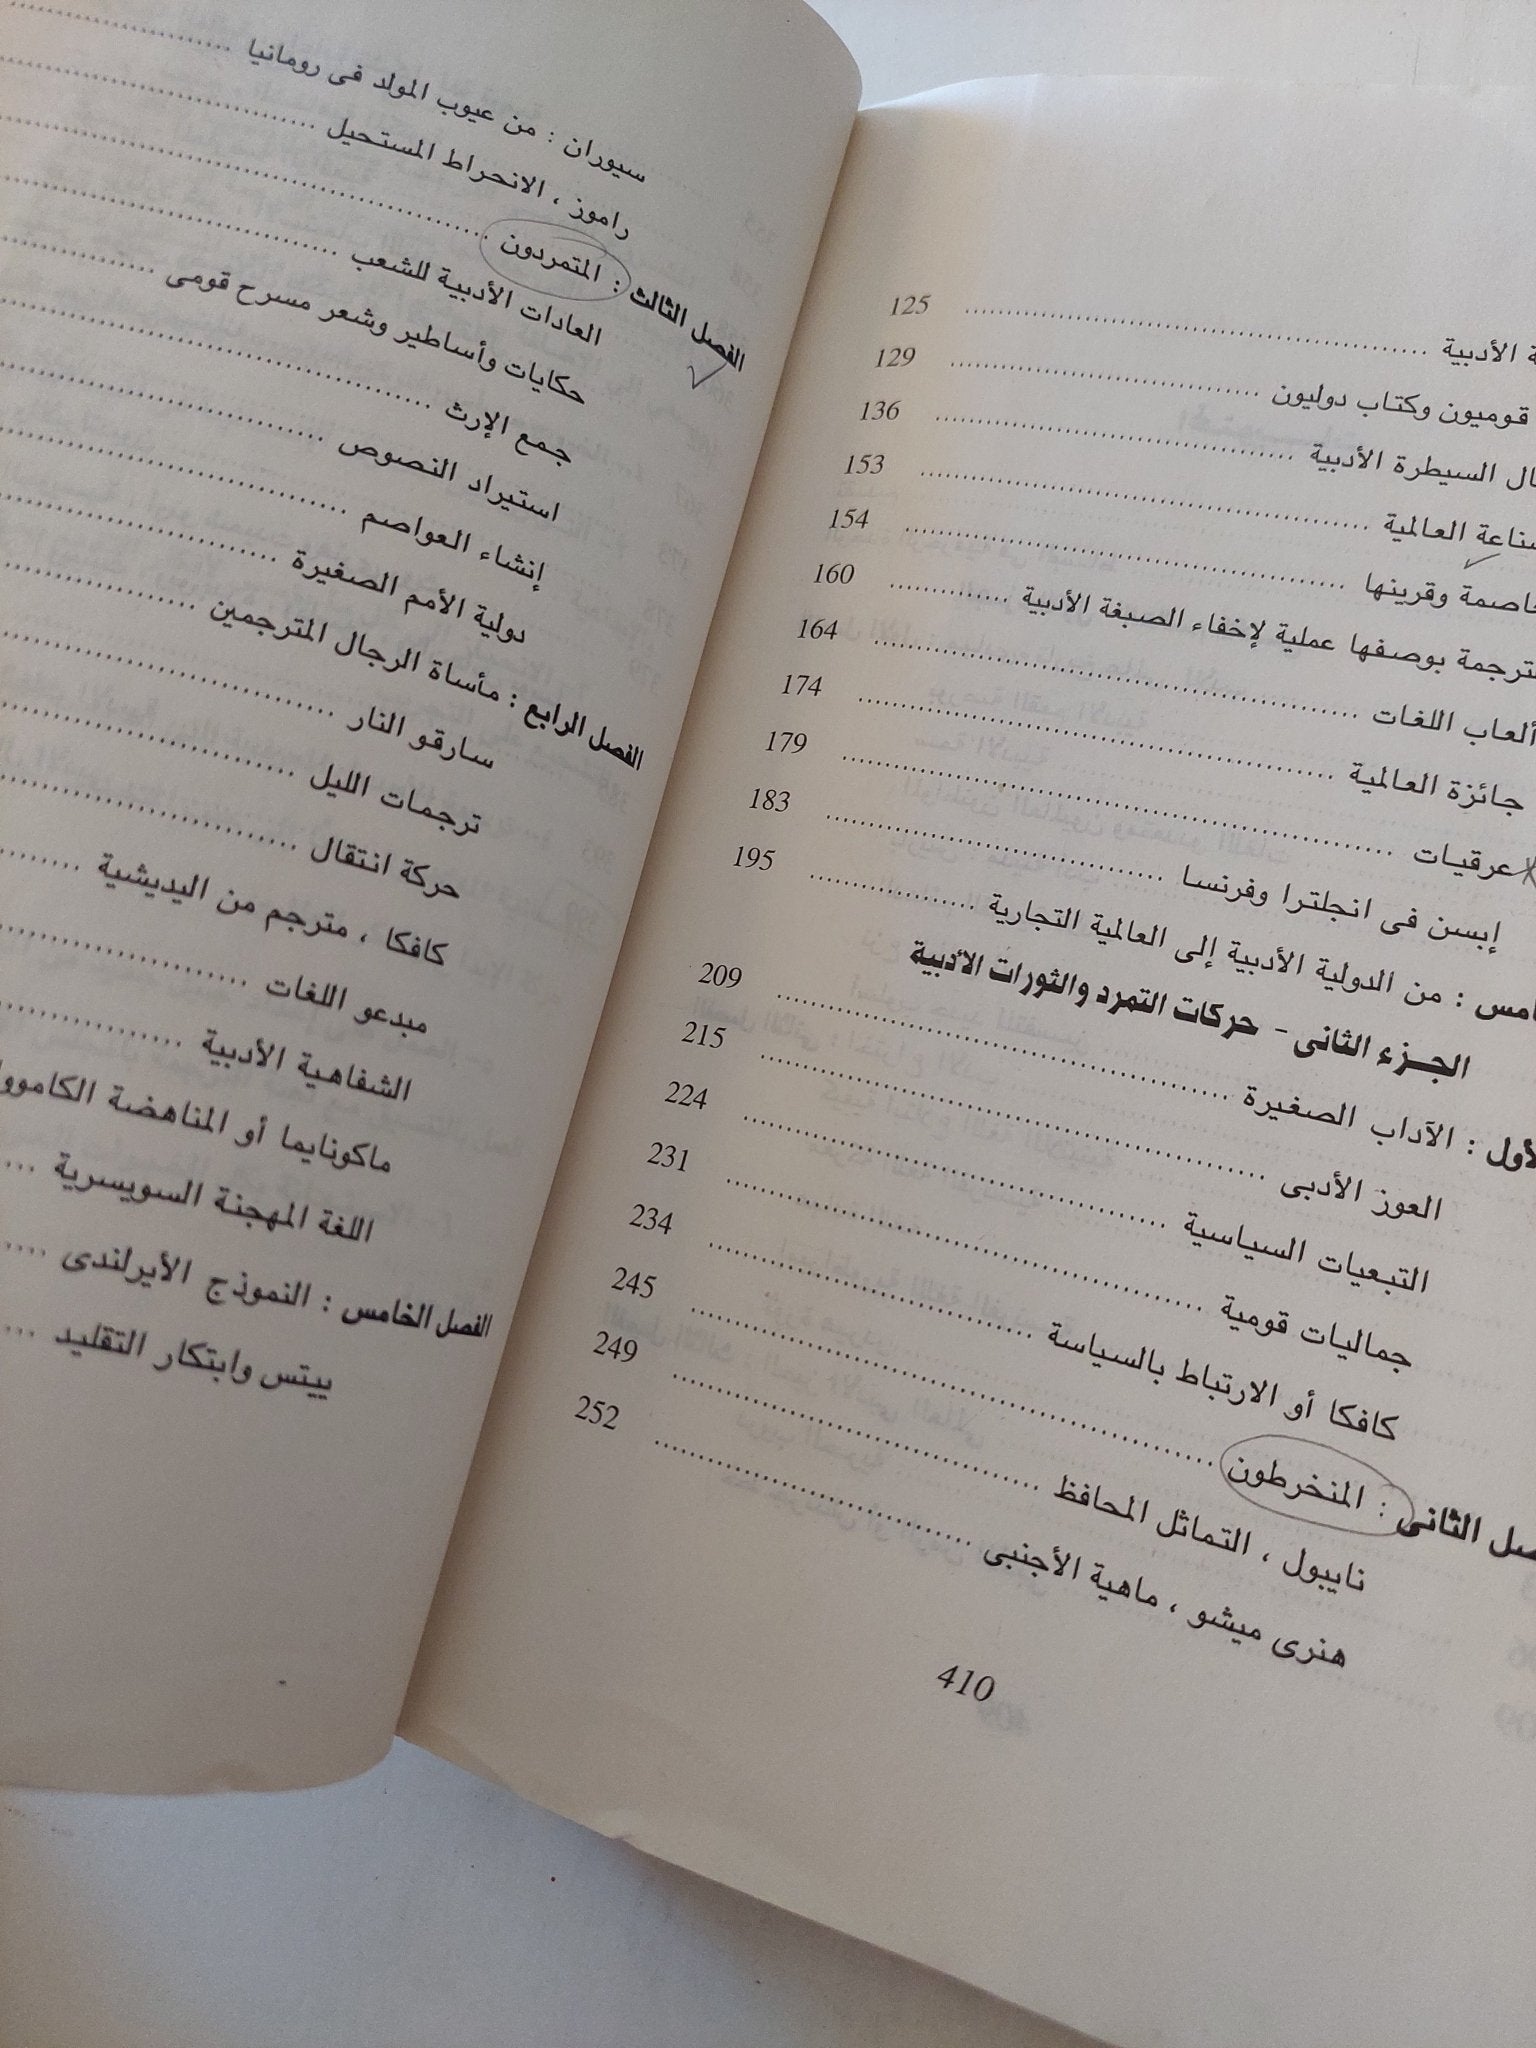 ة الأدبية ........ 125
قوميون وكتاب دوليون ........ 129
ال السيطرة الأدبية ........ 136
ناعة العالمية ........ 153
اصمة وقرينها ........ 154
ترجمة بوصفها عملية لإخفاء الصبغة الأدبية ........ 160
ألعاب اللغات ........ 164
جائزة العالمية ........ 174
عرقيات ........ 179
إبسن فى انجلترا وفرنسا ........ 183
امس : من الدولية الأدبية إلى العالمية التجارية ........ 195
الجزء الثانى - حركات التمرد والثورات الأدبية
لأول : الآداب الصغيرة ........ 209
العوز الأدبى ........ 215
التبعيات السياسية ........ 224
جماليات قومية ........ 231
كافكا أو الارتباط بالسياسة ........ 234
صل الثانى : المنخرطون ........ 245
نايبول ، التماثل المحافظ ........ 249
هنرى ميشو ، ماهية الأجنبى ........ 252
410
سيوران : من عيوب المولد فى رومانيا ........
راموز ، الانحراط المستحيل ........
الفصل الثالث : المتمردون ........
العادات الأدبية للشعب ........
حكايات وأساطير وشعر مسرح قومى ........
جمع الإرث ........
استيراد النصوص ........
إنشاء العواصم ........
دولية الأمم الصغيرة ........
الفصل الرابع : مأساة الرجال المترجمين ........
سارقو النار ........
ترجمات الليل ........
حركة انتقال ........
كافكا ، مترجم من اليديشية ........
مبدعو اللغات ........
الشفاهية الأدبية ........
ماكونايما أو المناهضة الكاموو
اللغة المهجنة السويسرية ....
الفصل الخامس : النموذج الأيرلندى ....
ييتس وابتكار التقليد ....